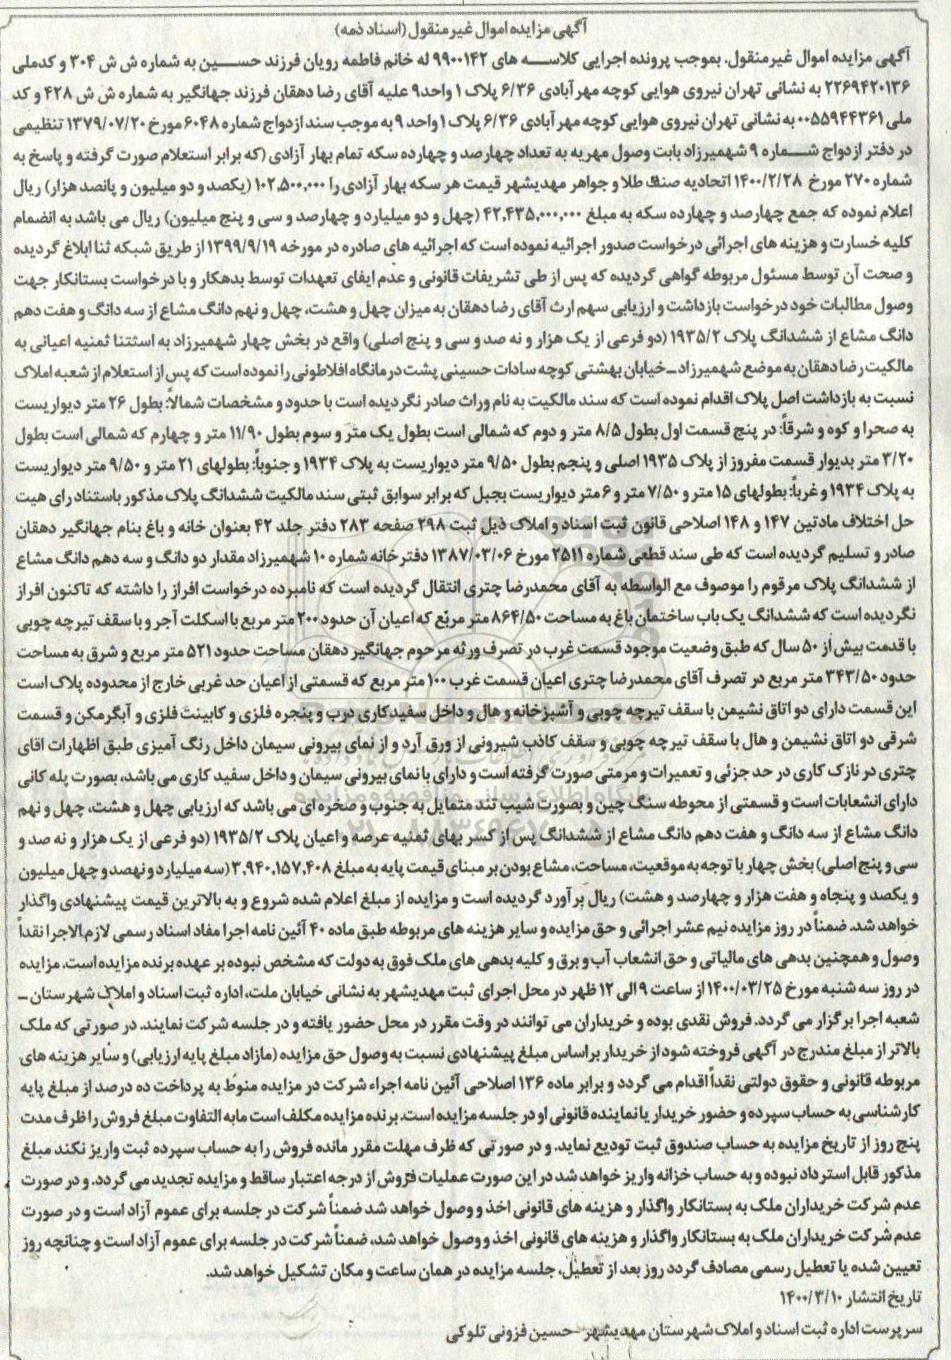 آگهی مزایده اموال غیرمنقول (اسناد ذمه)
آگهی مزایده اموال غیرمنقول. بموجب پرونده اجرایی کلاسه های ۹۹۰۰۱۴۲ له خانم فاطمه رویان فرزند حسین به شماره ش ش ۳۰۴ و کدملی
۲۲۶۹۴۲۰۱۳۶ به نشانی تهران نیروی هوایی کوچه مهرآبادی ۶/۳۶ پلاک ۱ واحد ۹ علیه آقای رضا دهقان فرزند جهانگیر به شماره ش ش ۴۲۸ و کد
ملی ۰۰۵۵۹۴۴۳۶۱ به نشانی تهران نیروی هوایی کوچه مهرآبادی ۶/۳۶ پلاک ۱ واحد ۹ به موجب سند ازدواج شماره ۶۰۴۸ مورخ ۱۳۷۹/۰۷/۲۰ تنظیمی
در دفتر ازدواج شماره ۹ شهمیرزاد بابت وصول مهریه به تعداد چهارصد و چهارده سکه تمام بهار آزادی (که برابر استعلام صورت گرفته و پاسخ به
شماره ۲۷۰ مورخ ۱۴۰۰/۲/۲۸ اتحادیه صنف طلا و جواهر مهدیشهر قیمت هر سکه بهار آزادی را ۱۰۲,۵۰۰,۰۰۰ (یکصد و دو میلیون و پانصد هزار) ریال
اعلام نموده که جمع چهارصد و چهارده سکه به مبلغ ۴۲,۴۳۵,۰۰۰,۰۰۰ (چهل و دو میلیارد و چهارصد و سی و پنج میلیون) ریال می باشد به انضمام
کلیه خسارت و هزینه های اجرائی درخواست صدور اجرائیه نموده است که اجرائیه های صادره در مورخه ۱۳۹۹/۹/۱۹ از طریق شبکه ثنا ابلاغ گردیده
و صحت آن توسط مسئول مربوطه گواهی گردیده که پس از طی تشریفات قانونی و عدم ایفای تعهدات توسط بدهکار و با درخواست بستانکار جهت
وصول مطالبات خود درخواست بازداشت و ارزیابی سهم ارث آقای رضا دهقان به میزان چهل و هشت، چهل و نهم دانگ مشاع از سه دانگ و هفت دهم
دانگ مشاع از ششدانگ پلاک ۱۹۳۵/۲ (دو فرعی از یک هزار و نه صد و سی و پنج اصلی) واقع در بخش چهار شهمیرزاد به استثنا ثمنیه اعیانی به
مالکیت رضا دهقان به موضع شهمیرزاد ـ خیابان بهشتی کوچه سادات حسینی پشت درمانگاه افلاطونی را نموده است که پس از استعلام از شعبه املاک
نسبت به بازداشت اصل پلاک اقدام نموده است که سند مالکیت به نام وراث صادر نگردیده است با حدود و مشخصات شمالاً: بطول ۲۶ متر دیواریست
به صحرا و کوه و شرقاً: در پنج قسمت اول بطول ۸/۵ متر و دوم که شمالی است بطول یک متر و سوم بطول ۱۱/۹۰ متر و چهارم که شمالی است بطول
۳/۲۰ متر بدیوار قسمت مفروز از پلاک ۱۹۳۵ اصلی و پنجم بطول ۹/۵۰ متر دیواریست به پلاک ۱۹۳۴ و جنوباً: بطولهای ۲۱ متر و ۹/۵۰ متر دیواریست
به پلاک ۱۹۳۴ و غرباً: بطولهای ۱۵ متر و ۷/۵۰ متر و ۶ متر دیواریست بجبل که برابر سوابق ثبتی سند مالکیت ششدانگ پلاک مذکور باستناد رای هیت
حل اختلاف مادتین ۱۴۷ و ۱۴۸ اصلاحی قانون ثبت اسناد و املاک ذیل ثبت ۲۹۸ صفحه ۲۸۳ دفتر جلد ۴۲ بعنوان خانه و باغ بنام جهانگیر دهقان
صادر و تسلیم گردیده است که طی سند قطعی شماره ۲۵۱۱ مورخ ۱۳۸۷/۰۳/۰۶ دفترخانه شماره ۱۰ شهمیرزاد مقدار دو دانگ و سه دهم دانگ مشاع
از ششدانگ پلاک مرقوم را موصوف مع الواسطه به آقای محمدرضا چتری انتقال گردیده است که نامبرده درخواست افراز را داشته که تاکنون افراز
نگردیده است که ششدانگ یک باب ساختمان باغ به مساحت ۸۶۴/۵۰ متر مربع که اعیان آن حدود ۲۰۰ متر مربع با اسکلت آجر و با سقف تیرچه چوبی
با قدمت بیش از ۵۰ سال که طبق وضعیت موجود قسمت غرب در تصرف ورثه مرحوم جهانگیر دهقان مساحت حدود ۵۲۱ متر مربع و شرق به مساحت
حدود ۳۴۳/۵۰ متر مربع در تصرف آقای محمدرضا چتری اعیان قسمت غرب ۱۰۰ متر مربع که قسمتی از اعیان حد غربی خارج از محدوده پلاک است
این قسمت دارای دو اتاق نشیمن با سقف تیرچه چوبی و آشپزخانه و هال و داخل سفیدکاری درب و پنجره فلزی و کابینت فلزی و آبگرمکن و قسمت
شرقی دو اتاق نشیمن و هال با سقف تیرچه چوبی و سقف کاذب شیرونی از ورق آرد و از نمای بیرونی سیمان داخل رنگ آمیزی طبق اظهارات اقای
چتری در نازک کاری در حد جزئی و تعمیرات و مرمتی صورت گرفته است و دارای با نمای بیرونی سیمان و داخل سفید کاری می باشد، بصورت پله کانی
دارای انشعابات است و قسمتی از محوطه سنگ چین و بصورت شیب تند متمایل به جنوب و صخره ای می باشد که ارزیابی چهل و هشت، چهل و نهم
دانگ مشاع از سه دانگ و هفت دهم دانگ مشاع از ششدانگ پس از کسر بهای ثمنیه عرصه و اعیان پلاک ۱۹۳۵/۲ (دو فرعی از یک هزار و نه صد و
سی و پنج اصلی) بخش چهار با توجه به موقعیت، مساحت، مشاع بودن بر مبنای قیمت پایه به مبلغ ۳,۹۴۰,۱۵۷,۴۰۸ (سه میلیارد و نهصد و چهل میلیون
و یکصد و پنجاه و هفت هزار و چهارصد و هشت) ریال برآورد گردیده است و مزایده از مبلغ اعلام شده شروع و به بالاترین قیمت پیشنهادی واگذار
خواهد شد. ضمناً در روز مزایده نیم عشر اجرائی و حق مزایده و سایر هزینه های مربوطه طبق ماده ۴۰ آئین نامه اجرا مفاد اسناد رسمی لازم الاجرا نقداً
وصول و همچنین بدهی های مالیاتی و حق انشعاب آب و برق و کلیه بدهی های ملک فوق به دولت که مشخص نبوده بر عهده برنده مزایده است. مزایده
در روز سه شنبه مورخ ۱۴۰۰/۰۳/۲۵ از ساعت ۹ الی ۱۲ ظهر در محل اجرای ثبت مهدیشهر به نشانی خیابان ملت، اداره ثبت اسناد و املاک شهرستان ـ
شعبه اجرا برگزار می گردد. فروش نقدی بوده و خریداران می توانند در وقت مقرر در محل حضور یافته و در جلسه شرکت نمایند. در صورتی که ملک
بالاتر از مبلغ مندرج در آگهی فروخته شود از خریدار براساس مبلغ پیشنهادی نسبت به وصول حق مزایده (مازاد مبلغ پایه ارزیابی) و سایر هزینه های
مربوطه قانونی و حقوق دولتی نقداً اقدام می گردد و برابر ماده ۱۳۶ اصلاحی آئین نامه اجراء شرکت در مزایده منوط به پرداخت ده درصد از مبلغ پایه
کارشناسی به حساب سپرده و حضور خریدار یا نماینده قانونی او در جلسه مزایده است. برنده مزایده مکلف است مابه التفاوت مبلغ فروش را ظرف مدت
پنج روز از تاریخ مزایده به حساب صندوق ثبت تودیع نماید. و در صورتی که ظرف مهلت مقرر مانده فروش را به حساب سپرده ثبت واریز نکند مبلغ
مذکور قابل استرداد نبوده و به حساب خزانه واریز خواهد شد در این صورت عملیات فروش از درجه اعتبار ساقط و مزایده تجدید می گردد. و در صورت
عدم شرکت خریداران ملک به بستانکار واگذار و هزینه های قانونی اخذ و وصول خواهد شد ضمناً شرکت در جلسه برای عموم آزاد است و در صورت
عدم شرکت خریداران ملک به بستانکار واگذار و هزینه های قانونی اخذ و وصول خواهد شد، ضمناً شرکت در جلسه برای عموم آزاد است و چنانچه روز
تعیین شده یا تعطیل رسمی مصادف گردد روز بعد از تعطیل، جلسه مزایده در همان ساعت و مکان تشکیل خواهد شد.
تاریخ انتشار ۱۴۰۰/۳/۱۰
سرپرست اداره ثبت اسناد و املاک شهرستان مهدیشهر -حسین فزونی تلوکی